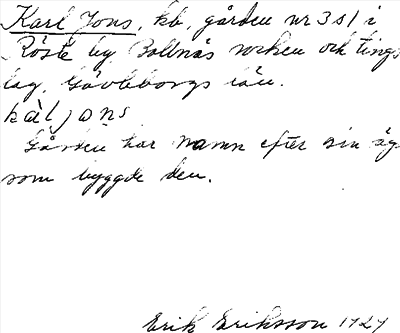 Karl Jons, kb, gården nr 3 s/ i
Röste by Bollnäs socken och tings
lag, Gävleborgs län.
kàl jons
Gården har namn efter sin äg
som byggde den.
Erik Eriksson 1727